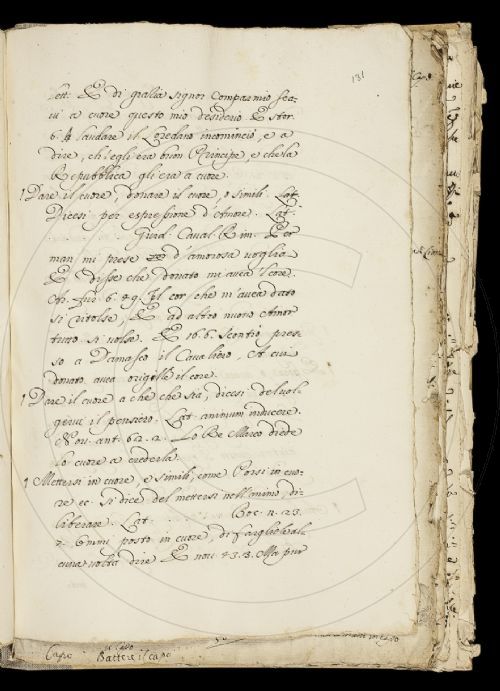 131
lett. E di gralia signor Comparmio stea-
vi a cuore questo mio desiderio E stor.
6. laudare il Loredano incominciò, e a
dire, ch'egli era buon Principe, e che la
Repubblica gli era a cuore.
¶ Dare il cuore, donare il cuore, o simili. Lat.
Dicesi per espressione d'Amore. Lat.
Guid. Caval. Rim. E or
man mi prese d'amorosa voglia
E disse che donato m'avea 'l core.
Ar. Fur. 6. 49. Il cor che m'avea dato
si ritolse, E ad altro nuovo Amor
tutto si volse. E 16. 6. Scontrò pres-
so a Damasco il Cavaliero, A cui
donato avea Origille il core.
¶ Dare il cuore a che che sia, dicesi del vol-
gervi il pensiero. Lat. animum inducere.
Nov. ant. 62. 2. Lo Re Marco diede
lo cuore a crederla.
¶ Mettersi in cuore, e simili, come Porsi in cuo-
re ec. si dice del mettersi nell'animo, di-
liberare. Lat. Boc. n. 23.
E emmi posto in cuore, di fargliele al-
cuna volta dire E nov. 43. 3. Ma pur
Capo
Battere il capo